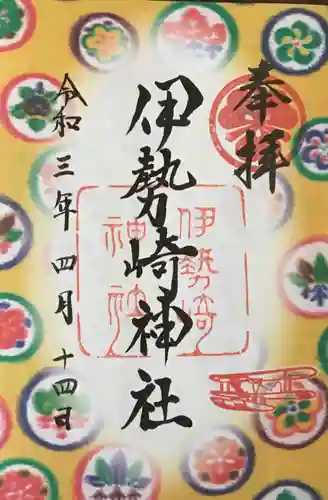 奉拝
伊勢崎神社
伊勢崎
神社
令和三年四月十四日